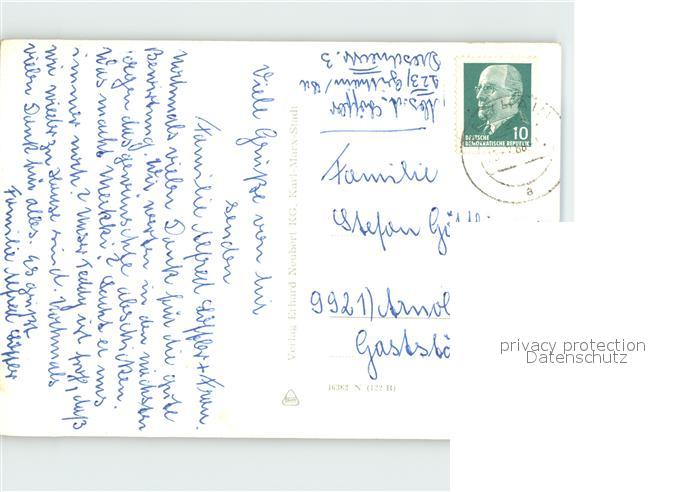 Viele Grüße von hier
senden
Familie Alfred Löffler + Frau.
Nochmals vielen Dank für die gute
Bewirtung. Wir werden in den nächsten
Tagen das gewünschte abschicken.
Was macht Mecki? Sucht er uns
immer noch? Unser Teddy ist froh, daß
wir wieder zu Hause sind. Nochmals
vielen Dank für alles. Es grüßt
Familie Alfred Löffler
Verlag Erhard Neubert KG, Karl-Marx-Stadt
Abs. A. Löffler
Dresdnerstr. 3
10
DEUTSCHE
DEMOKRATISCHE REPUBLIK
a
Familie
Stefan
9921) Arnol
Gaststä
16363 N (122 B)
privacy protection
Datenschutz